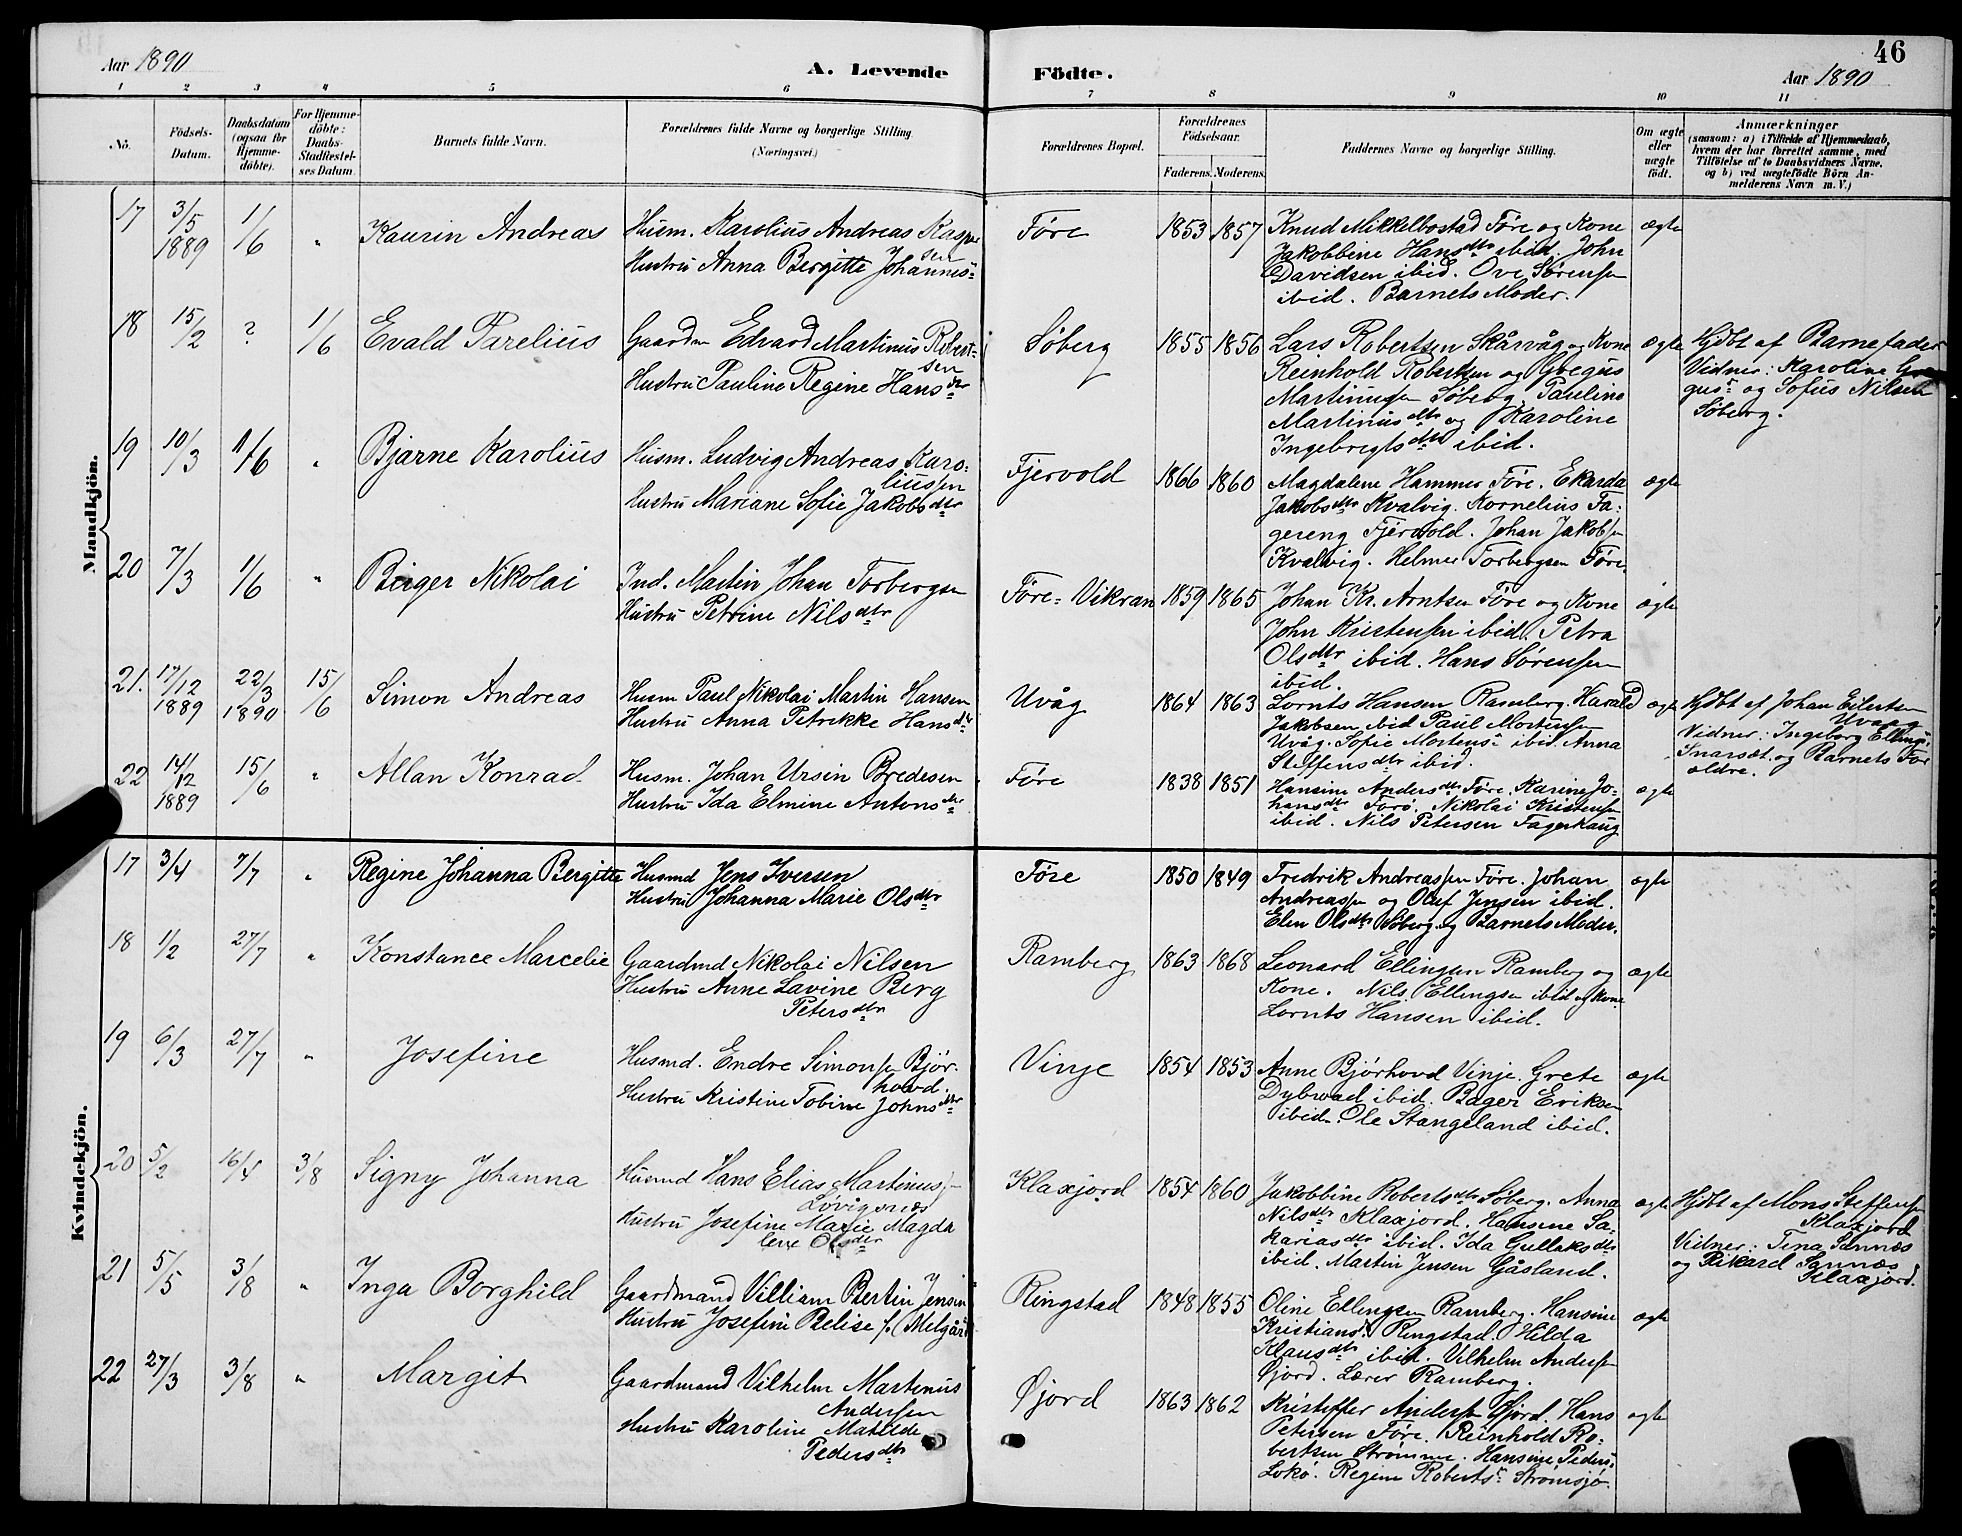 46
Aar 1890
A. Levende Födte.
Aar 1890
1 2 3 4 5 6 7 8 9 10 11
No.
Födsels-
Datum.
Daabsdatum
(ogsaa for
Hjemme-
döbte).
For Hjemme-
döbte:
Daabs-
Stadfæstel-
ses Datum.
Barnets fulde Navn.
Forældrenes fulde Navne og borgerlige Stilling.
(Næringsvei.)
Forældrenes Bopæl.
Forældrenes
Födselsaar.
Faderens. Moderens.
Faddernes Navne og borgerlige Stilling.
Om ægte
eller
uægte
födt.
Anmærkninger
(saasom: a) i Tilfælde af Hjemmedaab,
hvem der har forrettet samme, med
Tilföielse af to Daabsvidners Navne,
og b) ved uægtefödte Börn An-
melderens Navn m. V.)
Mandkjön.
17 3/5 1889 1/6 " Kaurin Andreas
Husm. Karolius Andreas Kasper
sen
Hustru Anna Bergitte Johannes"
Føre 1853 1857
Knud Mikkelbostad Føre og Kone
Jakobbine Hansdtr ibid. John
Davidsen ibid. Ove Sørensen
ibid. Barnets Moder.
ægte
18 15/2 ? 1/6 Evald Parelius
Gaardm Edvard Martinus Robert-
sen
Hustru Pauline Regine Hansdtr
Søberg 1855 1856
Lars Robertsen Skårvåg og Kone
Reinhold Robertsen og Gregus
Martinussen Søberg. Pauline
Martinusdtr og Karoline
Ingebregtsdtr ibid.
ægte
Hjdbt af Barnefader
Vidner: Karoline Gre
gus" og Sofus Nilsen
Søberg.
19 10/3 1/6 " Bjarne Karolius
Husm. Ludvig Andreas Karo-
liussen
Hustru Mariane Sofie Jakobsdtr
Fjervold 1866 1860
Magdalene Hammer Føre. Ekarda
Jakobsdtr Kvalvig. Kornelius Fa-
gereng Fjervold. Johan Jakobsen
Kvalvig. Helmer Torbergsen Føre.
ægte
20 7/3 1/6 " Birger Nikolai
Ind. Martin Johan Torbergsen
Hustru Petrine Nilsdtr
Føre-Vikran 1859 1865
Johan Kr. Arntsen Føre og Kone
John Kristensen ibid. Petra
Olsdtr ibid. Hans Sørensen
ibid.
ægte
21. 17/12 1889 22/3 1890 15/6 Simon Andreas
Husm Paul Nikolai Martin Hansen
Hustru Anna Petrikke Hansdtr
Uvåg 1864 1863
Lornts Hansen Ramberg. Harald
Jakobsen ibid Paul Mortensen
Uvåg. Sofie Mortens" ibid. Anna
Steffensdtr ibid.
ægte
Hjdbt af Johan Eilertsen
Uvaag
Vidner: Ingeborg Ellings"
Snarsæt og Barnets For
ældre.
22 14/12 1889 15/6 " Allan Konrad
Husm. Johan Ursin Bredesen
Hustru Ida Elmine Antonsdtr
Føre 1838 1851
Hansine Andersdtr Føre. Karine Jo-
hansdtr Førø. Nikolai Kristensen
ibid. Nils Petersen Fagerhaug
ægte
Kvindekjön.
17 3/4 7/7 " Regine Johanna Bergitte
Husmd Jens Iversen
Hustru Johanna Marie Olsdtr
Føre 1850 1849
Fredrik Andreassen Føre. Johan
Andreassen og Oluf Jensen ibid.
Elen Olsdtr Søberg og Barnets Moder.
ægte
18 1/2 27/7 " Konstance Marcelie
Gaardmd Nikolai Nilsen
Hustru Anne Lavine Berg
Petersdtr
Ramberg 1863 1868
Leonard Ellingsen Ramberg og
Kone. Nils Ellingsen ibid og Kone
Lornts Hansen ibid.
ægte
19 6/3 27/7 " Josefine
Husmd. Endre Simonsen Bjør-
hovd.
Hustru Kristine Tobine Johnsdtr
Vinje 1854 1853
Anne Bjørhovd Vinje. Grete
Dybwad ibid. Bager Eriksen
ibid. Ole Stangeland ibid.
ægte
20 5/2 16/4 3/8 Signy Johanna
Husmd Hans Elias Martinus
Løvigsnæs
Hustru Josefine Marie Magda
lene Olsdtr
Klaxjord 1854 1860
Jakobbine Robertsdtr Søberg. Anna
Nilsdtr Klaxjord. Hansine Sa-
kariasdtr ibid. Ida Gullaksdtr
ibid. Martin Jensen Gåsland.
ægte
Hjdbt af Mons Steffensen
Klaxjord
Vidner: Tina Sannæs
og Rikard Sannæs
Klaxjord.
21 5/5 3/8 " Inga Borghild
Gaardmand Villiam Bertin Jensen
Hustru Josefine Pelise f. (Melgår
Ringstad 1848 1855
Oline Ellingsen Ramberg. Hansine
Kristiansd. Ringstad. Hilda
Klausdtr ibid. Vilhelm Andersen
Øjord. Lærer Ramberg.
ægte
22 27/3 3/8 " Margit
Gaardmand Vilhelm Martinus
Andersen
Hustru Karoline Matilde
Pedersdtr
Øjord 1863 1862
Kristoffer Andersen Øjord. Hans
Petersen Føre. Reinhold Ro-
bertsen Strømme. Hansine Peders"
Lokø. Regine Roberts" Strømsjø.
ægte